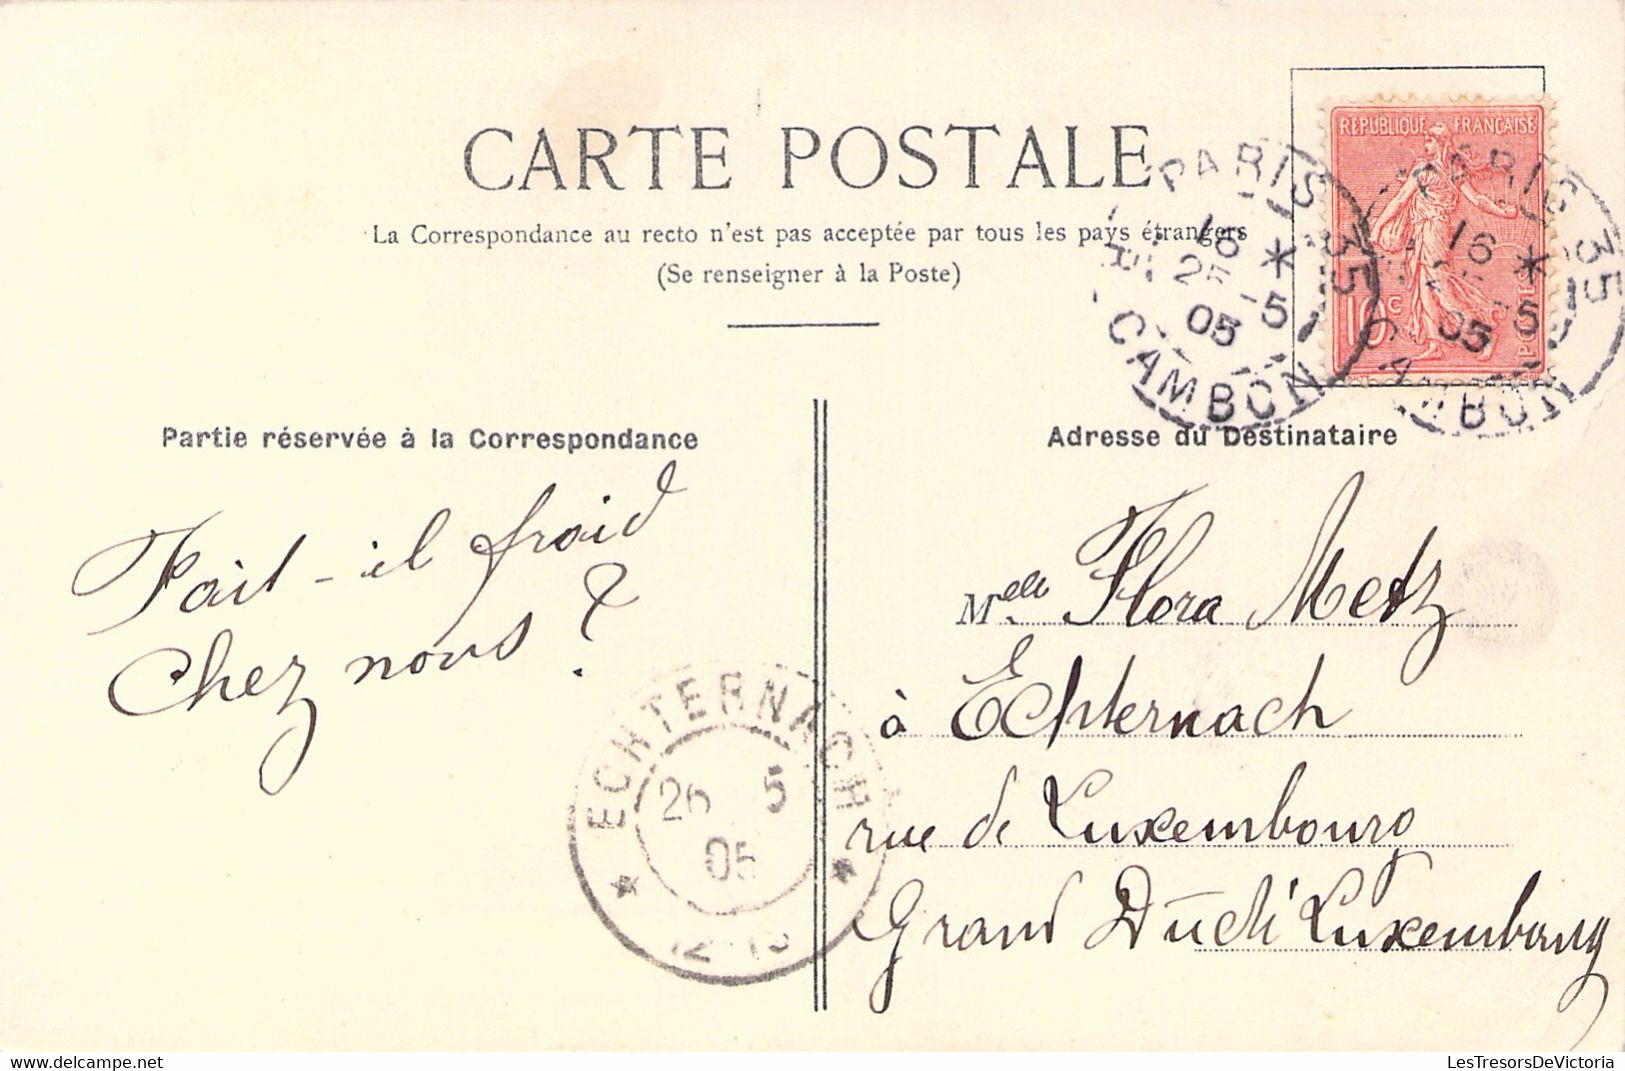 CARTE POSTALE
La Correspondance au recto n'est pas acceptée par tous les pays étrangers
(Se renseigner à la Poste)
RÉPUBLIQUE FRANÇAISE
10c
POSTES
PARIS 35
16 *
25 -5
05
R. CAMBON
PARIS 35
16 *
25 5
05
CAMBON
Partie réservée à la Correspondance
Fait-il froid
Chez nous ?
ECHTERNACH
26 5
05
12-1
Adresse du Destinataire
Melle Flora Metz
à Echternach
rue de Luxembourg
Grand Duché Luxembourg
LesTresorsDeVictoria